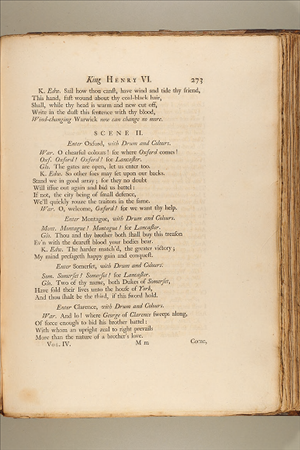 King HENRY VI. 273
K. Edw. Sail how thou canst, have wind and tide thy friend,
This hand, fast wound about thy coal-black hair,
Shall, while thy head is warm and new cut off,
Write in the dust this sentence with thy blood,
Wind-changing Warwick now can change no more.
SCENE II.
Enter Oxford, with Drum and Colours.
War. O chearful colours! see where Oxford comes!
Oxf. Oxford! Oxford! for Lancaster.
Glo. The gates are open, let us enter too.
K. Edw. So other foes may set upon our backs.
Stand we in good array; for they no doubt
Will issue out again and bid us battel:
If not, the city being of small defence,
We'll quickly rouze the traitors in the same.
War. O, welcome, Oxford! for we want thy help.
Enter Montague, with Drum and Colours.
Mont. Montague! Montague! for Lancaster.
Glo. Thou and thy brother both shall buy this treason
Ev'n with the dearest blood your bodies bear.
K. Edw. The harder match'd, the greater victory;
My mind presageth happy gain and conquest.
Enter Somerset, with Drum and Colours.
Som. Somerset! Somerset! for Lancaster.
Glo. Two of thy name, both Dukes of Somerset,
Have sold their lives unto the house of York,
And thou shalt be the third, if this sword hold.
Enter Clarence, with Drum and Colours.
War. And lo! where George of Clarence sweeps along,
Of force enough to bid his brother battel:
With whom an upright zeal to right prevails
More than the nature of a brother's love.
VOL. IV. M m Come,